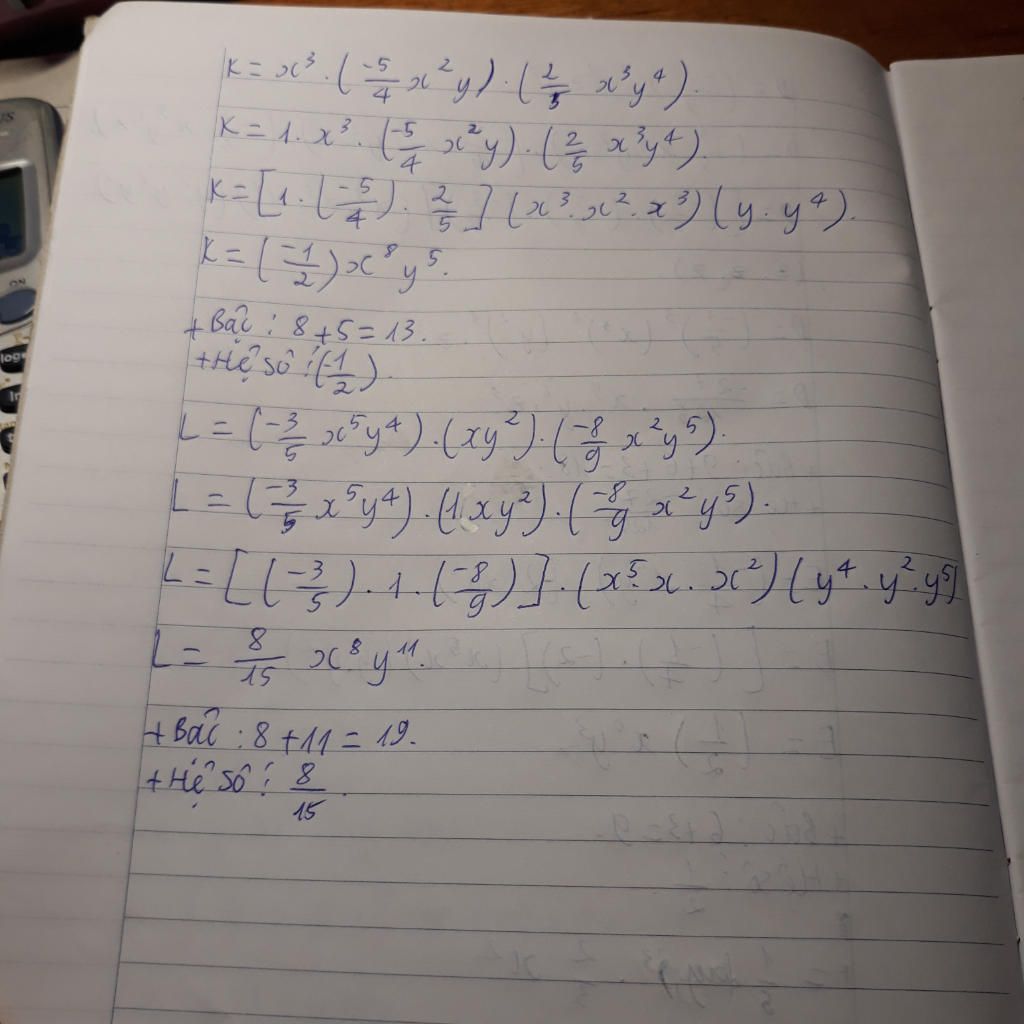 K = x³ . (-5/4 x²y) . (2/5 x³y⁴).
K = 1. x³ . (-5/4 x²y) . (2/5 x³y⁴).
K = [1 . (-5/4) . 2/5] (x³ . x² . x³) (y . y⁴).
K = (-1/2) x⁸ y⁵.
+ Bậc : 8 + 5 = 13.
+ Hệ Số : (-1/2).
L = (-3/5 x⁵y⁴) . (xy²) . (-8/9 x²y⁵).
L = (-3/5 x⁵y⁴) . (1.xy²) . (-8/9 x²y⁵).
L = [(-3/5) . 1 . (-8/9)] . (x⁵ . x . x²) (y⁴ . y² . y⁵)
L = 8/15 x⁸ y¹¹.
+ Bậc : 8 + 11 = 19.
+ Hệ Số : 8/15.
ON
log